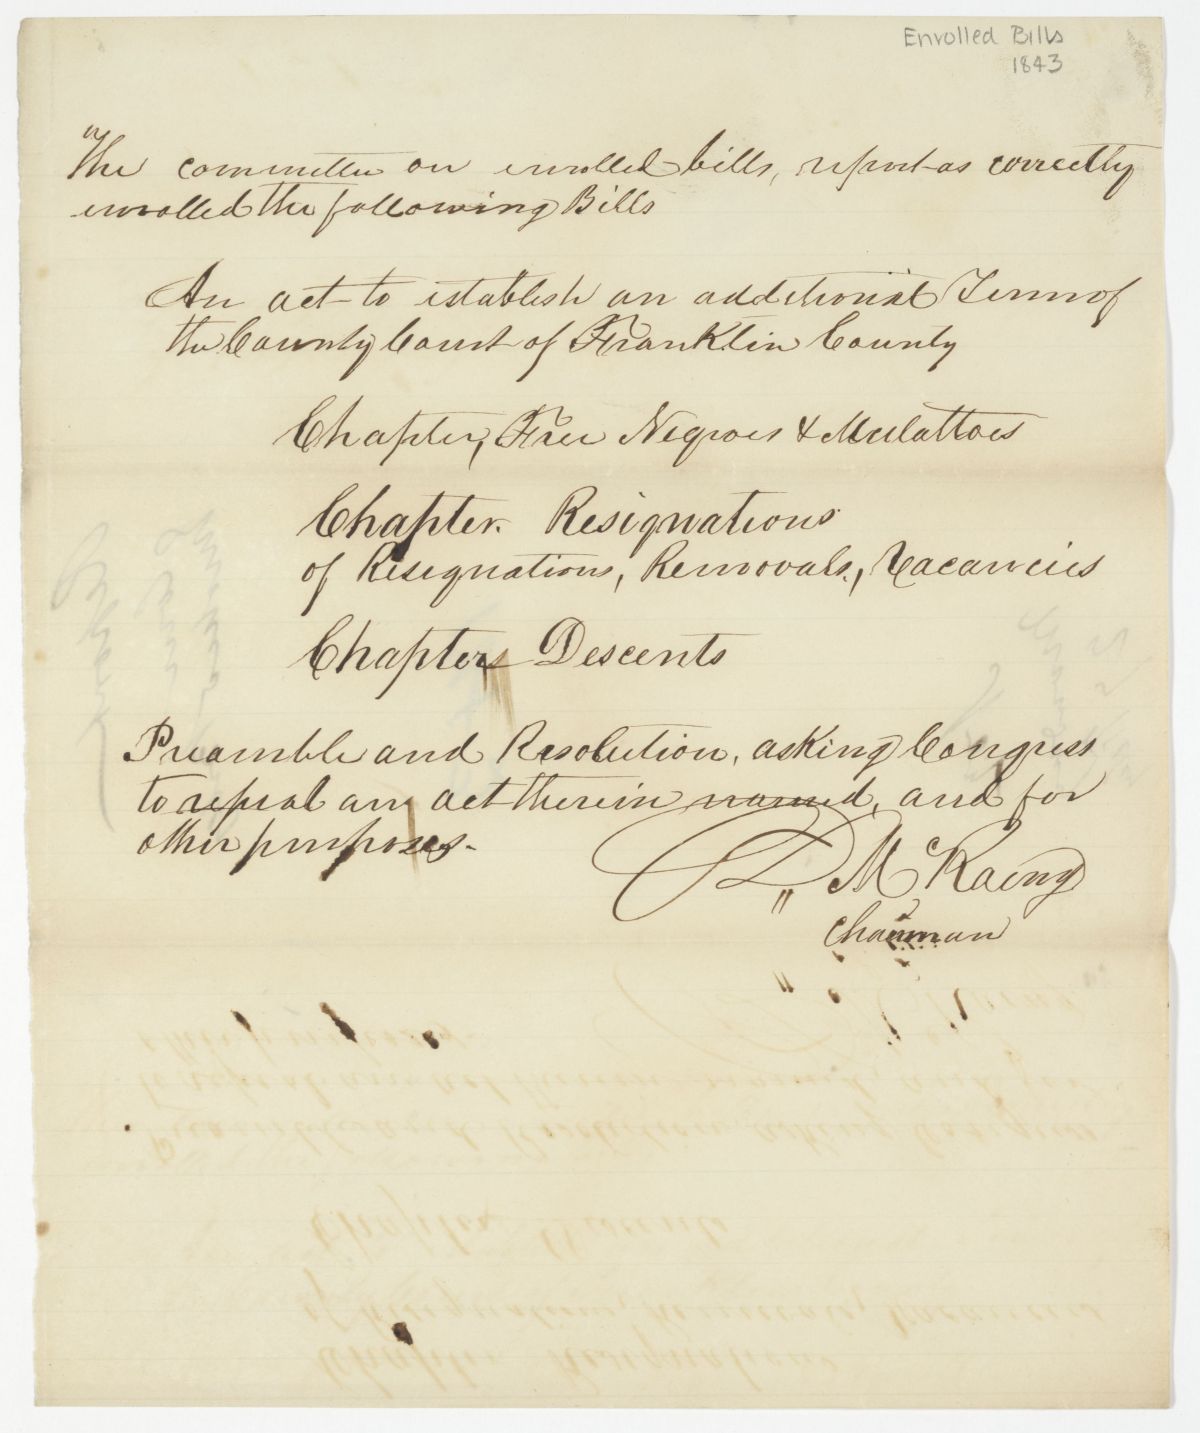 Enrolled Bills
1843
"The committee on enrolled bills, report as correctly
enrolled the following Bills
An act to establish an additional Term of
the County Court of Franklin County
Chapter, Free Negroes & Mulattoes
Chapter. Resignations
of Resignations, Removals, Vacancies
Chapters Descents
Preamble and Resolution, asking Congress
to repeal an act therein named, and for
other purposes.
McRaeny
Chairman